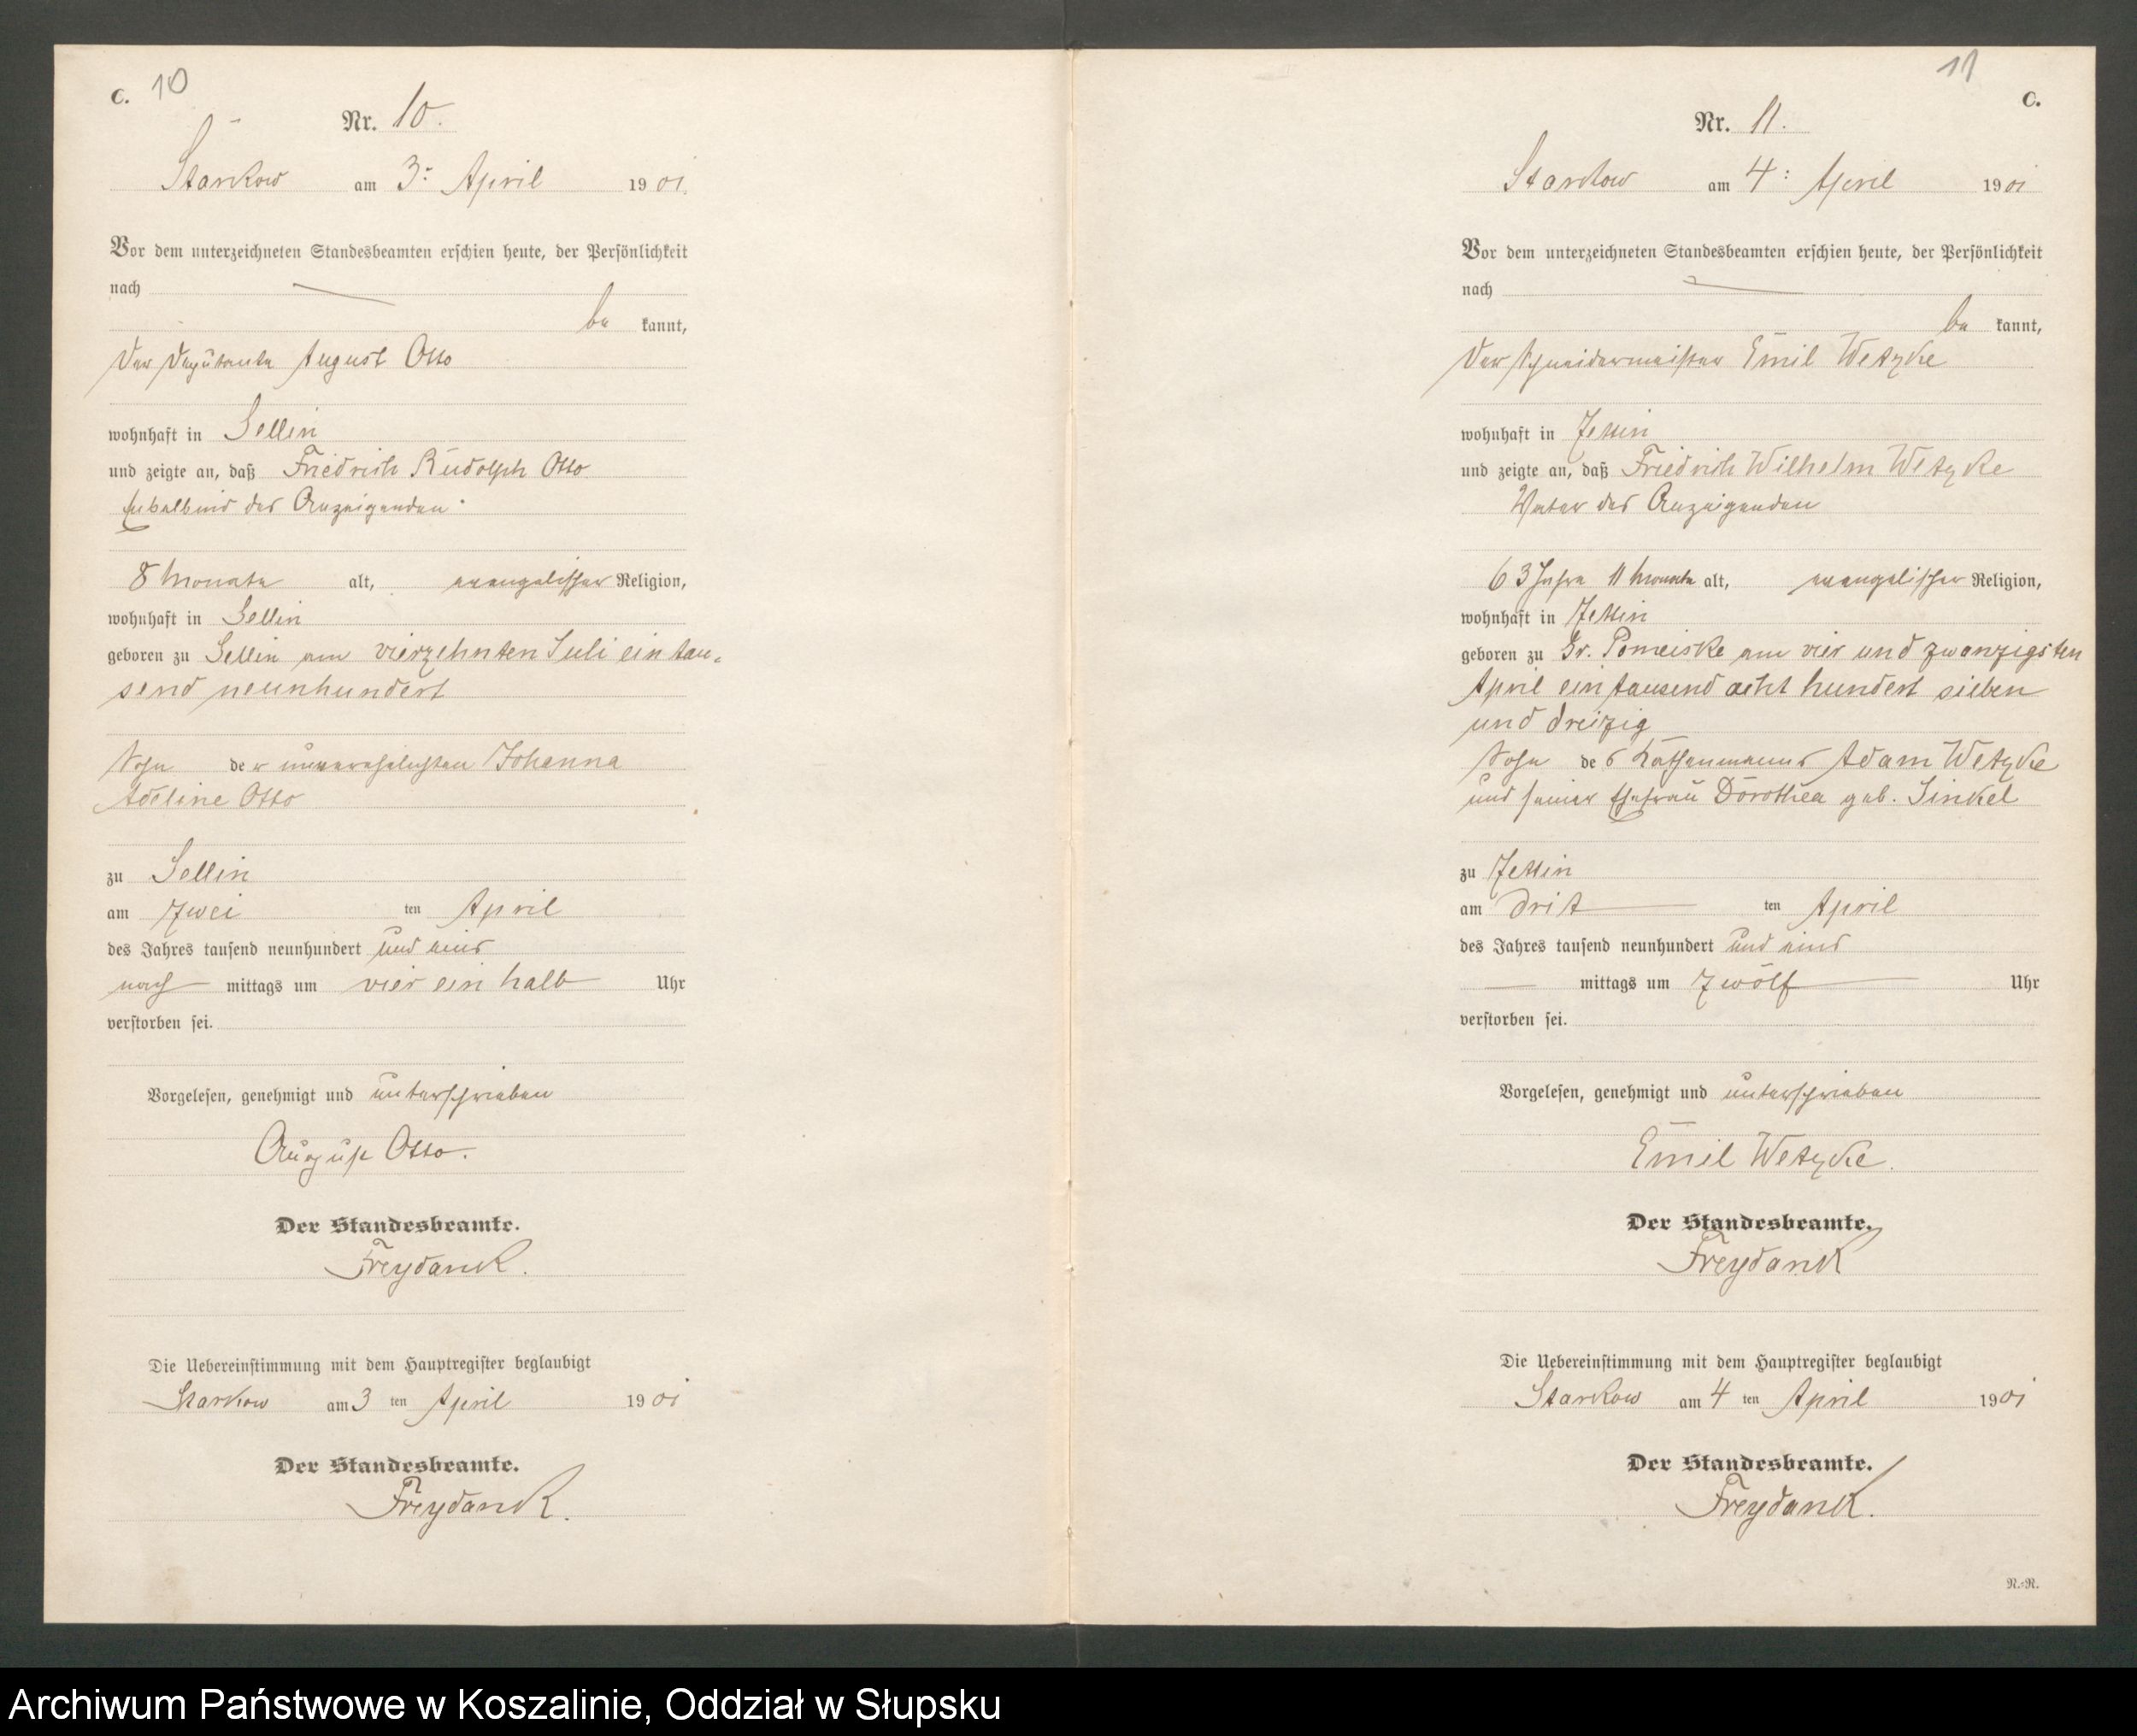 C. 10
Nr. 10.
Starkow am 3: April 1901.
Vor dem unterzeichneten Standesbeamten erschien heute, der Persönlichkeit
nach
be kannt,
Der Deputante August Otto
wohnhaft in Sellin
und zeigte an, daß Friedrich Rudolph Otto
Enkelkind des Anzeigenden.
8 Monate alt, evangelischer Religion,
wohnhaft in Sellin
geboren zu Sellin am vierzehnten Juli ein tau-
send neunhundert
Sohn der unverehelichten Johanna
Adeline Otto
zu Sellin
am zwei ten April
des Jahres tausend neunhundert und eins
nach mittags um vier ein halb Uhr
verstorben sei.
Vorgelesen, genehmigt und unterschrieben
August Otto.
Der Standesbeamte.
Freydank.
Die Uebereinstimmung mit dem Hauptregister beglaubigt
Starkow am 3 ten April 1901
Der Standesbeamte.
Freydank.
11
C.
Nr. 11.
Starkow am 4: April 1901
Vor dem unterzeichneten Standesbeamten erschien heute, der Persönlichkeit
nach
be kannt,
Der Schneidermeister Emil Wetzke
wohnhaft in Zettin
und zeigte an, daß Friedrich Wilhelm Wetzke
Vater des Anzeigenden
63 Jahre 11 Monate alt, evangelischer Religion,
wohnhaft in Zettin
geboren zu Gr. Pomeiske am vier und zwanzigsten
April ein tausend acht hundert sieben
und dreizig
Sohn des Käthenmanns Adam Wetzke
und seiner Ehefrau Dorothea geb. Sinkel
zu Zettin
am drit ten April
des Jahres tausend neunhundert und eins
mittags um zwölf Uhr
verstorben sei.
Vorgelesen, genehmigt und unterschrieben
Emil Wetzke.
Der Standesbeamte.
Freydank
Die Uebereinstimmung mit dem Hauptregister beglaubigt
Starkow am 4 ten April 1901
Der Standesbeamte.
Freydank.
N.-R.
Archiwum Państwowe w Koszalinie, Oddział w Słupsku